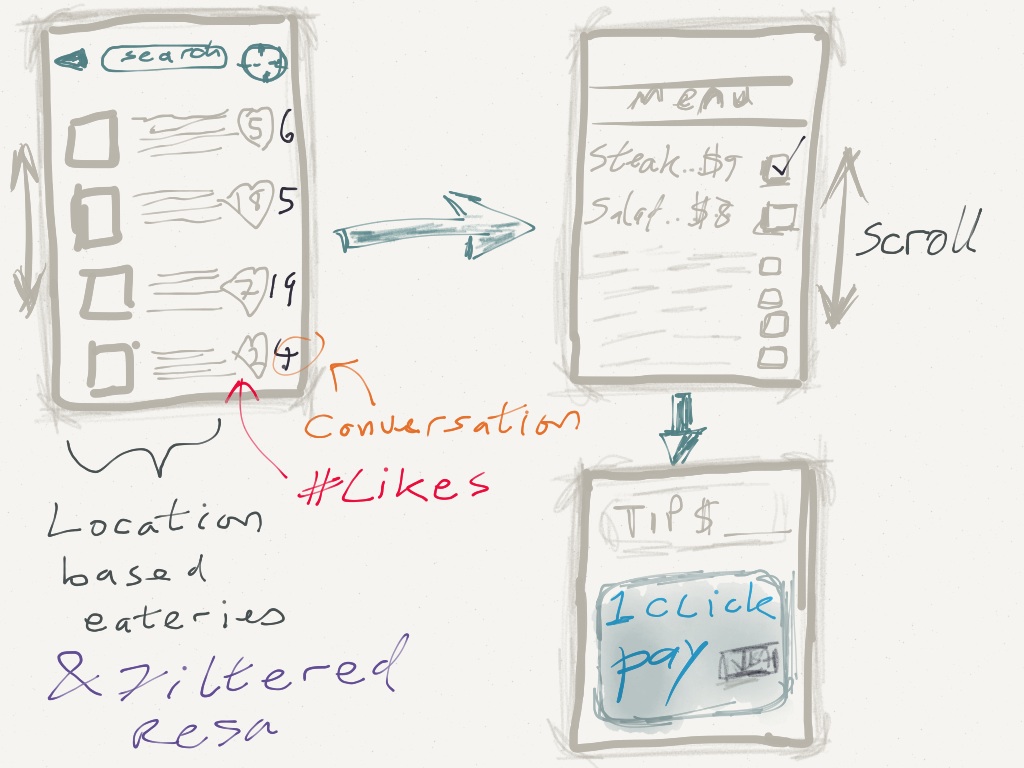 search
5 6
18 5
7 19
3 4
Conversation
#Likes
Location
based
eateries
& Filtered
Resa
Menu
Steak..$9
Salat..$8
Scroll
TIP $
1 CLICK
pay